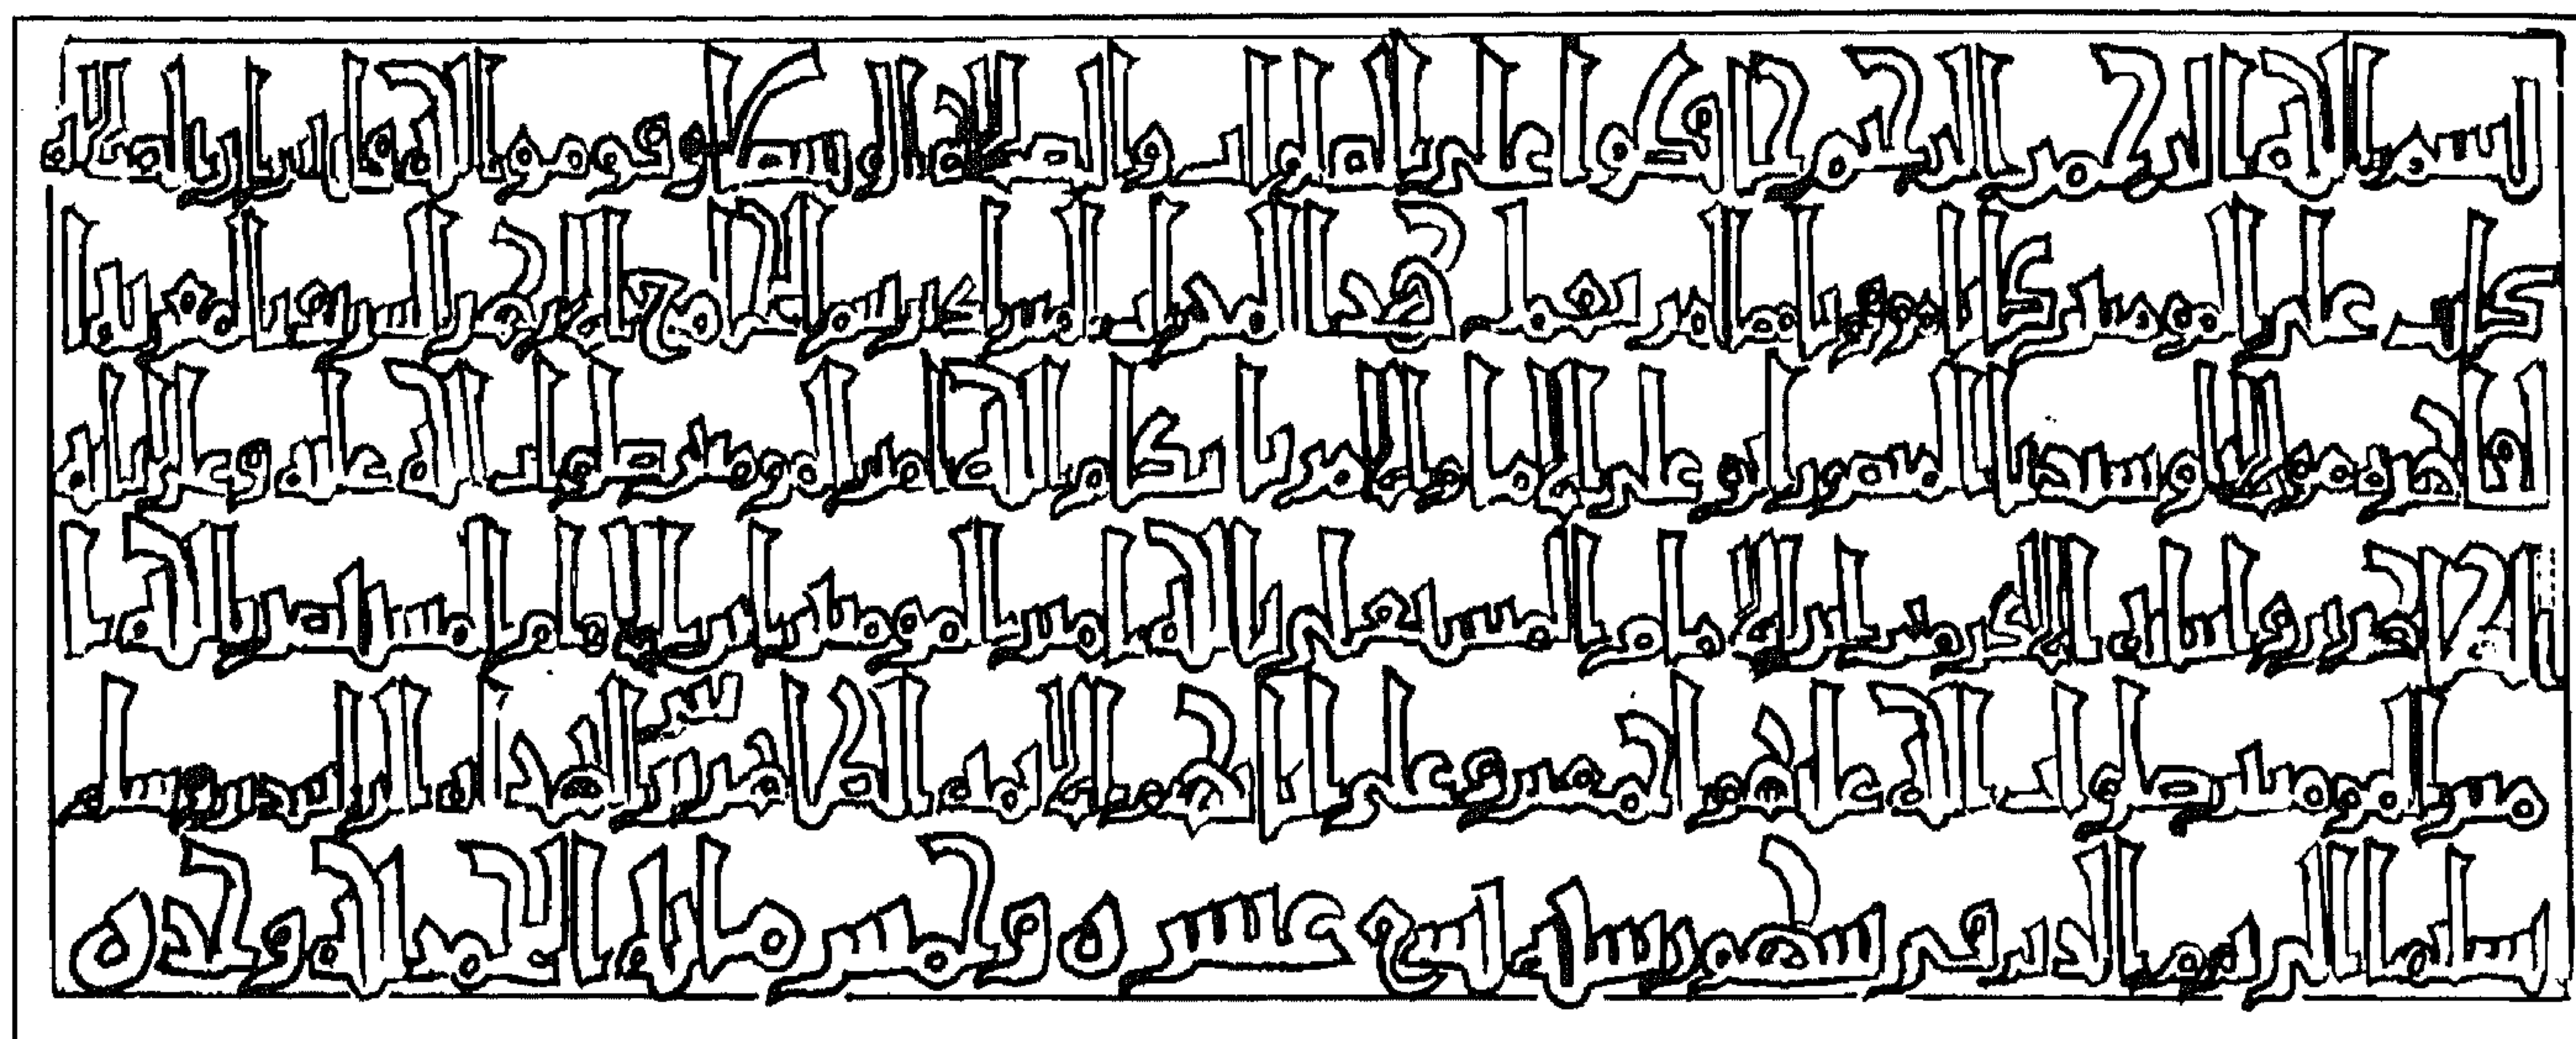 بسم الله الرحمن الرحيم حافظوا على الصلوات والصلاة الوسطى وقوموا لله قانتين إن الصلاة
كانت على المؤمنين كتابا موقوتا مما أمر بعمل هذا المحراب المبارك برسم الجامع الأزهر الشريف بالمعزية ا
لقاهرة مولانا وسيدنا المنصور أبو علي الإمام الآمر بأحكام الله أمير المؤمنين صلوات الله عليه وعلى آبائه
الطاهرين وأبنائه الأكرمين ابن الإمام المستعلي بالله أمير المؤمنين ابن الإمام المستنصر بالله أ
مير المؤمنين صلوات الله عليهم أجمعين وعلى آبائهم الأئمة الطاهرين بني الهداة الراشدين وسلم
تسليما إلى يوم الدين في شهور سنة تسع عشرة وخمس مائة الحمد لله وحده